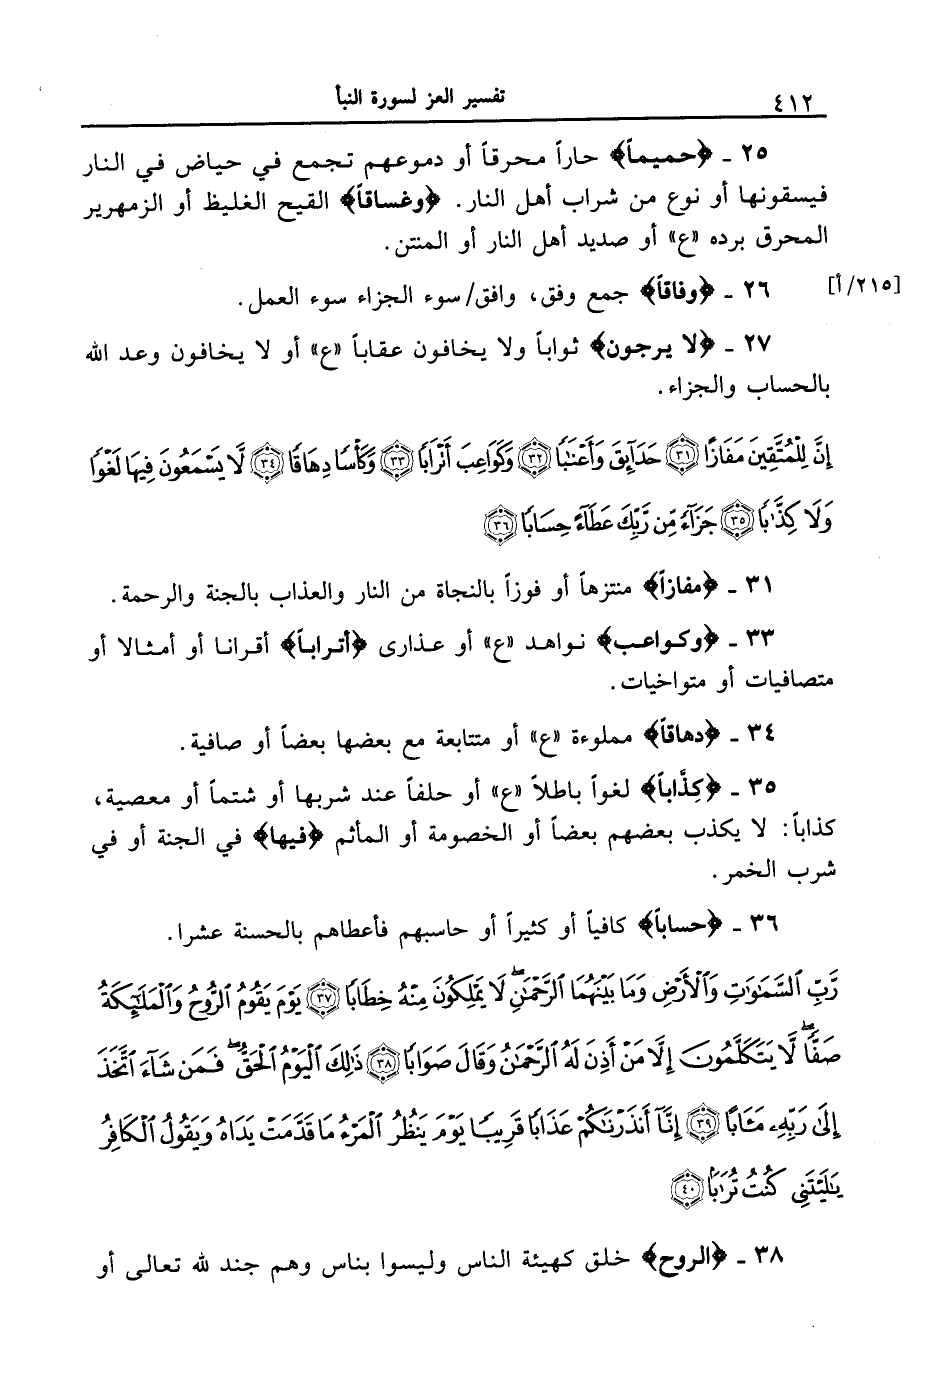 ٤١٢ تفسير العز لسورة النبأ
٢٥ ـ ﴿حميماً﴾ حاراً محرقاً أو دموعهم تجمع في حياض في النار
فيسقونها أو نوع من شراب أهل النار. ﴿وغساقاً﴾ القيح الغليظ أو الزمهرير
المحرق برده «ع» أو صديد أهل النار أو المنتن.
[٢١٥/أ] ٢٦ ـ ﴿وفاقاً﴾ جمع وفق، وافق/سوء الجزاء سوء العمل.
٢٧ ـ ﴿لا يرجون﴾ ثواباً ولا يخافون عقاباً «ع» أو لا يخافون وعد الله
بالحساب والجزاء.
إِنَّ لِلْمُتَّقِينَ مَفَازًا ٣١ حَدَآئِقَ وَأَعْنَٰبًا ٣٢ وَكَوَاعِبَ أَتْرَابًا ٣٣ وَكَأْسًا دِهَاقًا ٣٤ لَّا يَسْمَعُونَ فِيهَا لَغْوًا
وَلَا كِذَّٰبًا ٣٥ جَزَآءً مِّن رَّبِّكَ عَطَآءً حِسَابًا ٣٦
٣١ ـ ﴿مفازاً﴾ منتزهاً أو فوزاً بالنجاة من النار والعذاب بالجنة والرحمة.
٣٣ ـ ﴿وكواعب﴾ نواهد «ع» أو عذارى ﴿أتراباً﴾ أقرانا أو أمثالا أو
متصافيات أو متواخيات.
٣٤ ـ ﴿دهاقاً﴾ مملوءة «ع» أو متتابعة مع بعضها بعضاً أو صافية.
٣٥ ـ ﴿كِذَّاباً﴾ لغواً باطلاً «ع» أو حلفاً عند شربها أو شتماً أو معصية،
كذاباً: لا يكذب بعضهم بعضاً أو الخصومة أو المأثم ﴿فيها﴾ في الجنة أو في
شرب الخمر.
٣٦ ـ ﴿حساباً﴾ كافياً أو كثيراً أو حاسبهم فأعطاهم بالحسنة عشرا.
رَّبِّ ٱلسَّمَٰوَٰتِ وَٱلْأَرْضِ وَمَا بَيْنَهُمَا ٱلرَّحْمَٰنِ ۖ لَا يَمْلِكُونَ مِنْهُ خِطَابًا ٣٧ يَوْمَ يَقُومُ ٱلرُّوحُ وَٱلْمَلَٰٓئِكَةُ
صَفًّا ۖ لَّا يَتَكَلَّمُونَ إِلَّا مَنْ أَذِنَ لَهُ ٱلرَّحْمَٰنُ وَقَالَ صَوَابًا ٣٨ ذَٰلِكَ ٱلْيَوْمُ ٱلْحَقُّ ۖ فَمَن شَآءَ ٱتَّخَذَ
إِلَىٰ رَبِّهِۦ مَـَٔابًا ٣٩ إِنَّآ أَنذَرْنَٰكُمْ عَذَابًا قَرِيبًا يَوْمَ يَنظُرُ ٱلْمَرْءُ مَا قَدَّمَتْ يَدَاهُ وَيَقُولُ ٱلْكَافِرُ
يَٰلَيْتَنِى كُنتُ تُرَٰبًا ٤٠
٣٨ ـ ﴿الروح﴾ خلق كهيئة الناس وليسوا بناس وهم جند لله تعالى أو